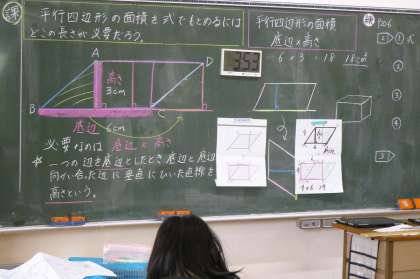 課
平行四辺形の面積を式でもとめるには
どこの長さが必要だろう。
平行四辺形の面積
底辺×高さ
6 × 3 = 18 18cm²
353
A
D
高さ
3cm
B
C
底辺 6cm
必要なのは 底辺と高さ
☆一つの辺を底辺としたとき底辺と底辺に
向かい合った辺に垂直にひいた直線を
高さという。
P106
① 式
②
③
④
2